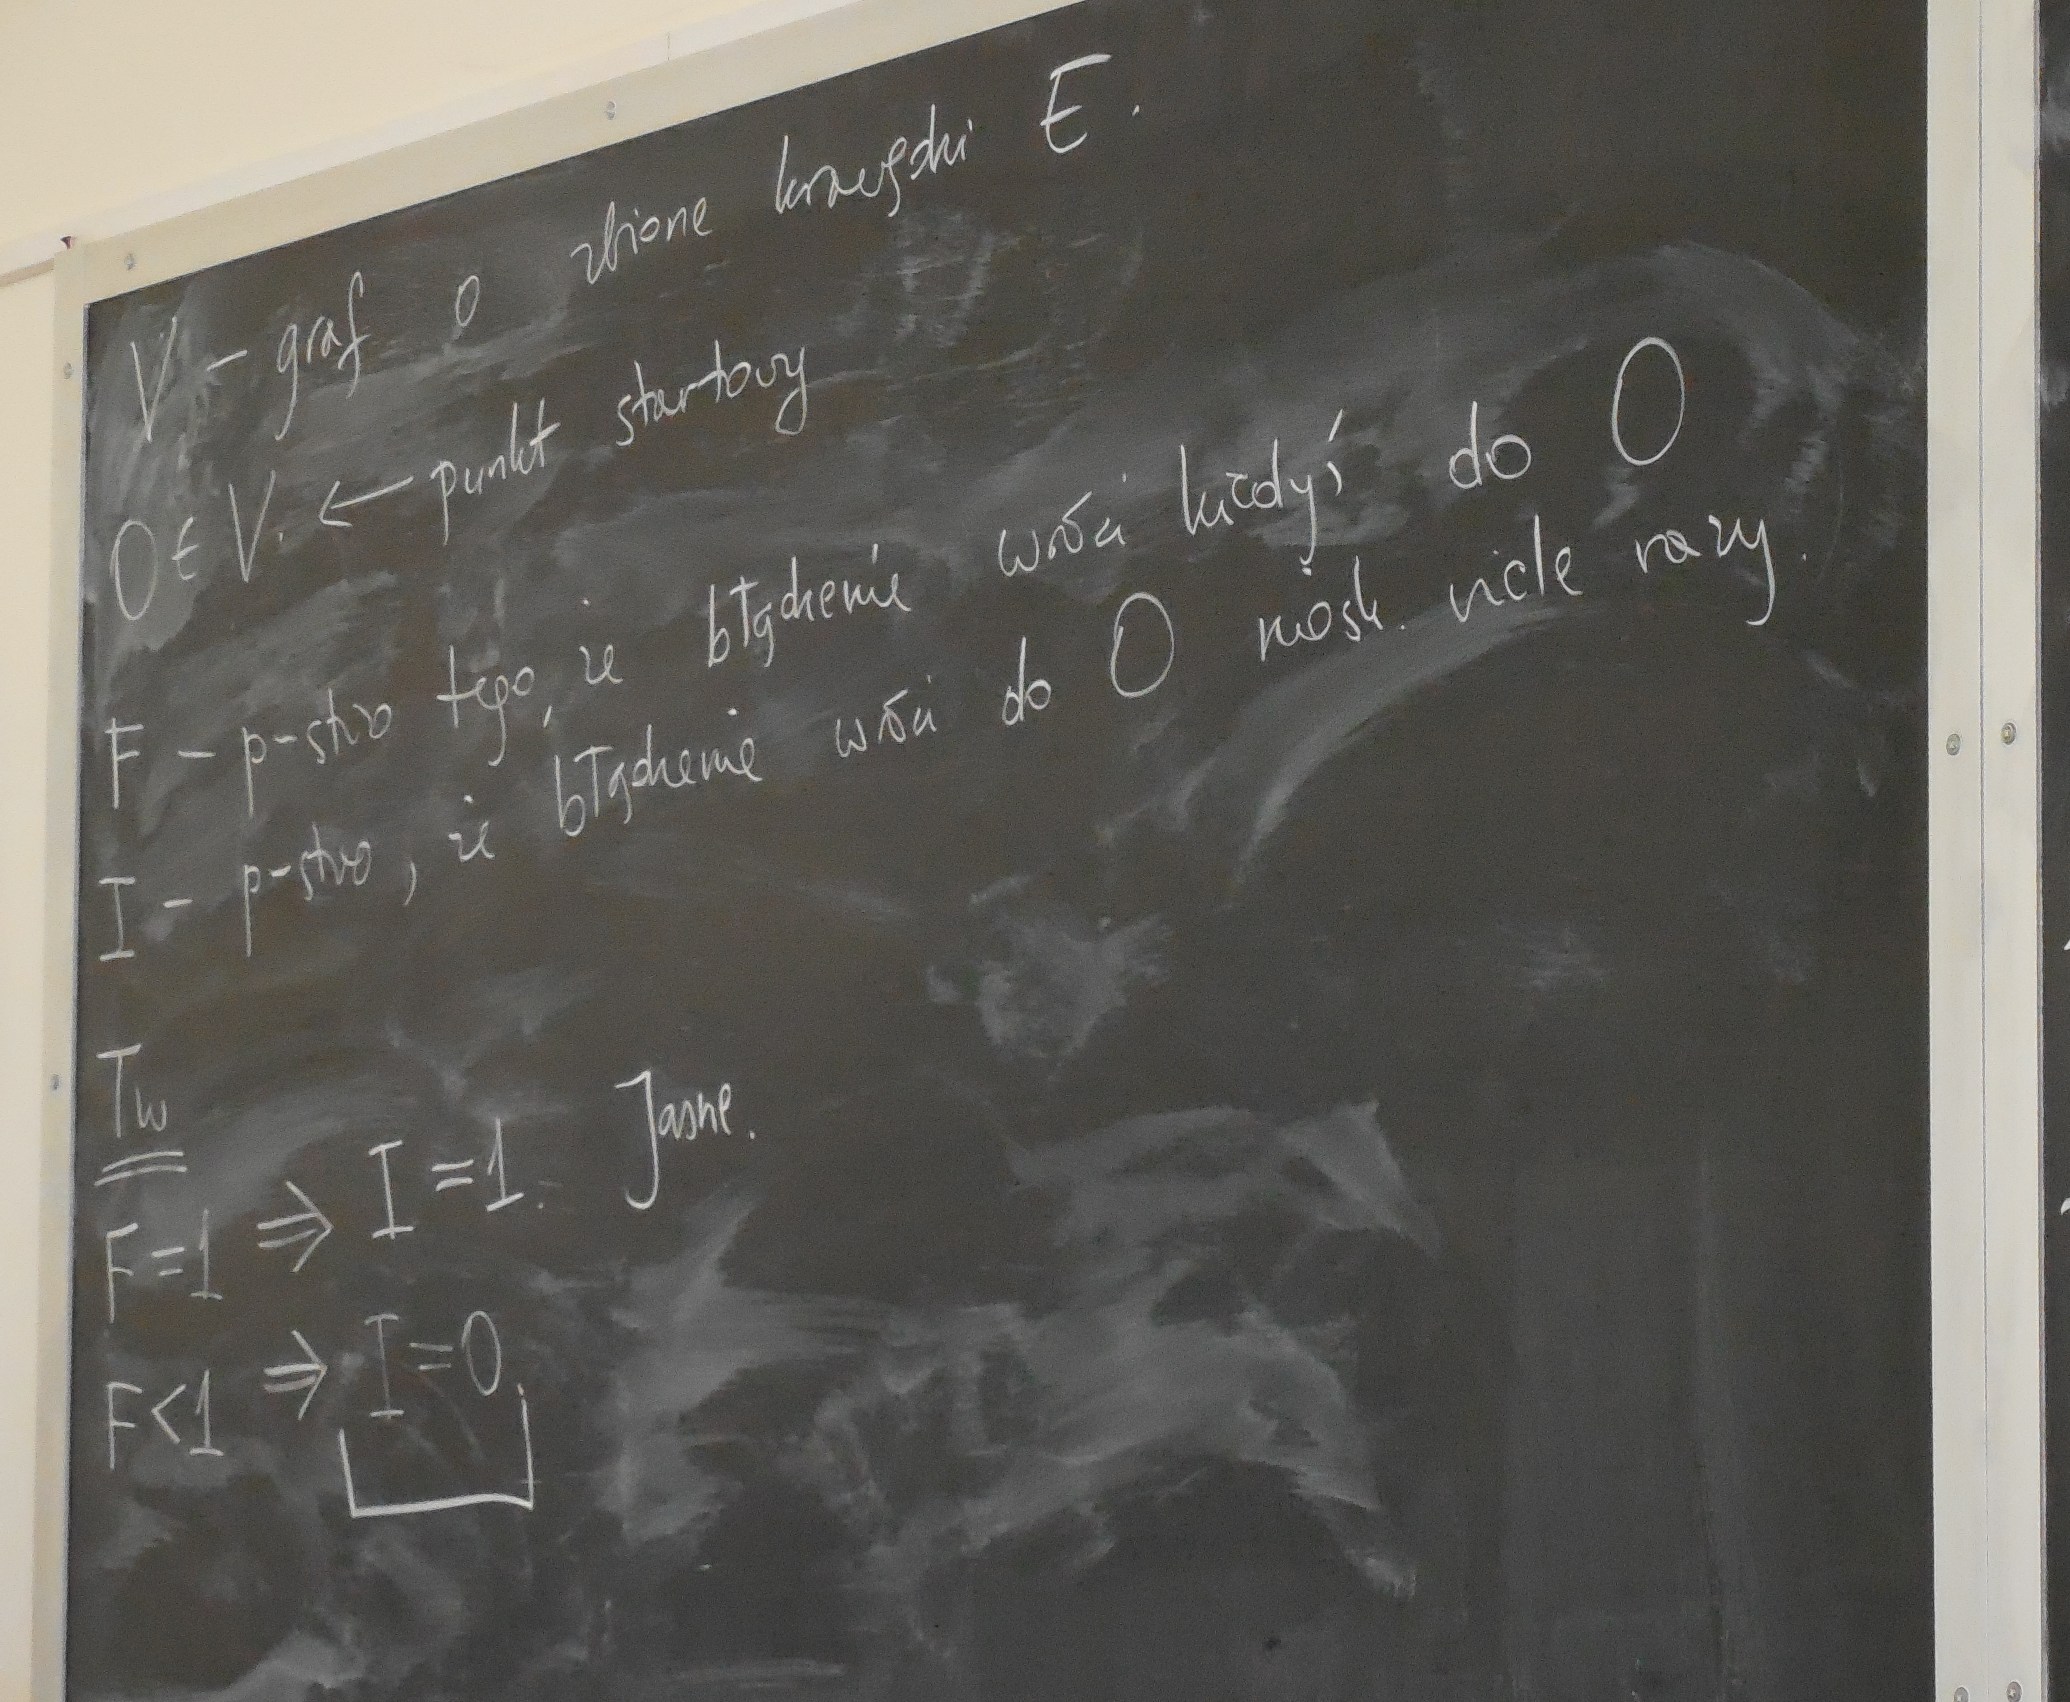 V – graf o zbiorze krawędzi E.
O ∈ V. ← punkt startowy
F – p-stwo tego, że błądzenie wróci kiedyś do O
I – p-stwo, że błądzenie wróci do O niesk. wiele razy.
Tw
F=1 ⇒ I=1. Jasne.
F<1 ⇒ I=0